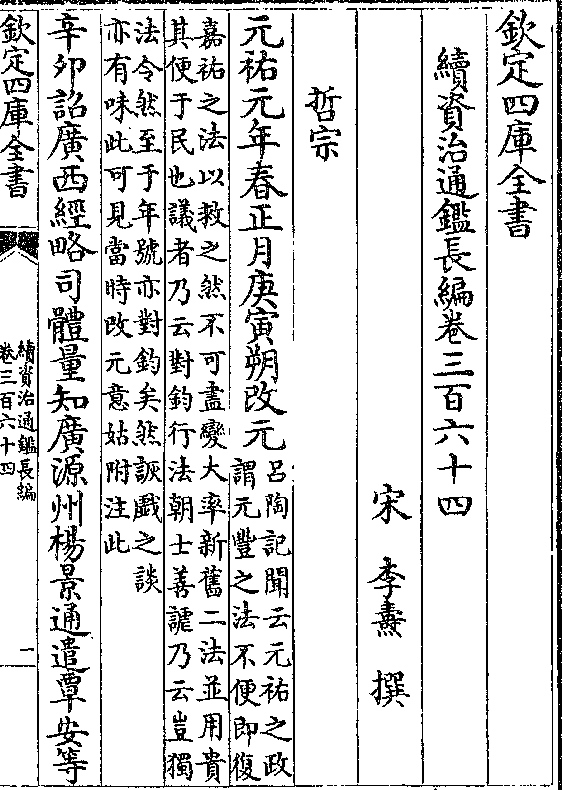 欽定四庫全書
續資治通鑑長編卷三百六十四
宋 李燾 撰
哲宗
元祐元年春正月庚寅朔改元
呂陶記聞云元祐之政
謂元豐之法不便即復
嘉祐之法以救之然不可盡變大率新舊二法並用貴
其便于民也議者乃云對鈞行法朝士善謔乃云豈獨
法令然至于年號亦對鈞矣然詼戲之談
亦有味此可見當時改元意姑附注此
辛卯詔廣西經略司體量知廣源州楊景通遣覃安等
欽定四庫全書
續資治通鑑長編
卷三百六十四
一